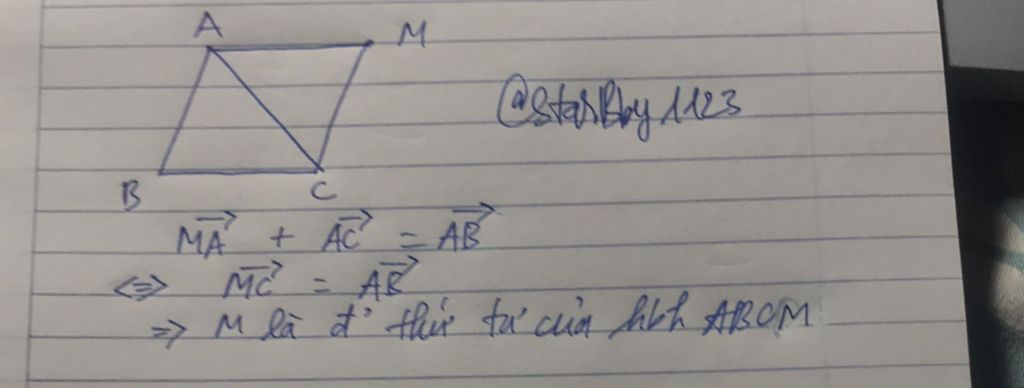 A M
@starBby1123
B C
MA→ + AC→ = AB→
<=> MC→ = AB→
=> M là đ' thứ tư của hbh ABCM